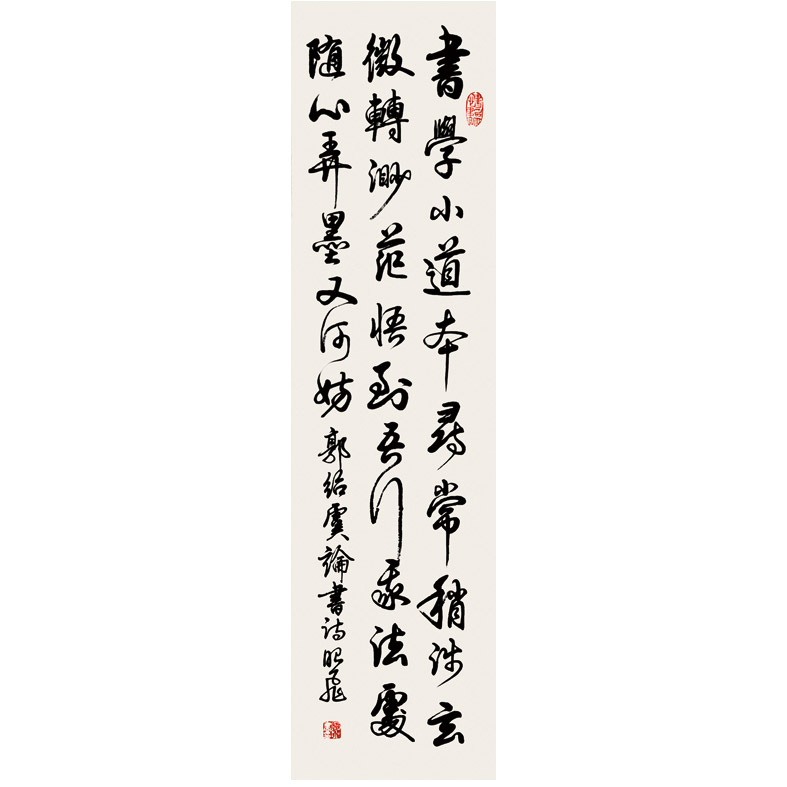 書學小道本尋常稍涉玄
微轉渺茫悟到吾行我法處
随心弄墨又何妨郭绍虞論書诗昭飛